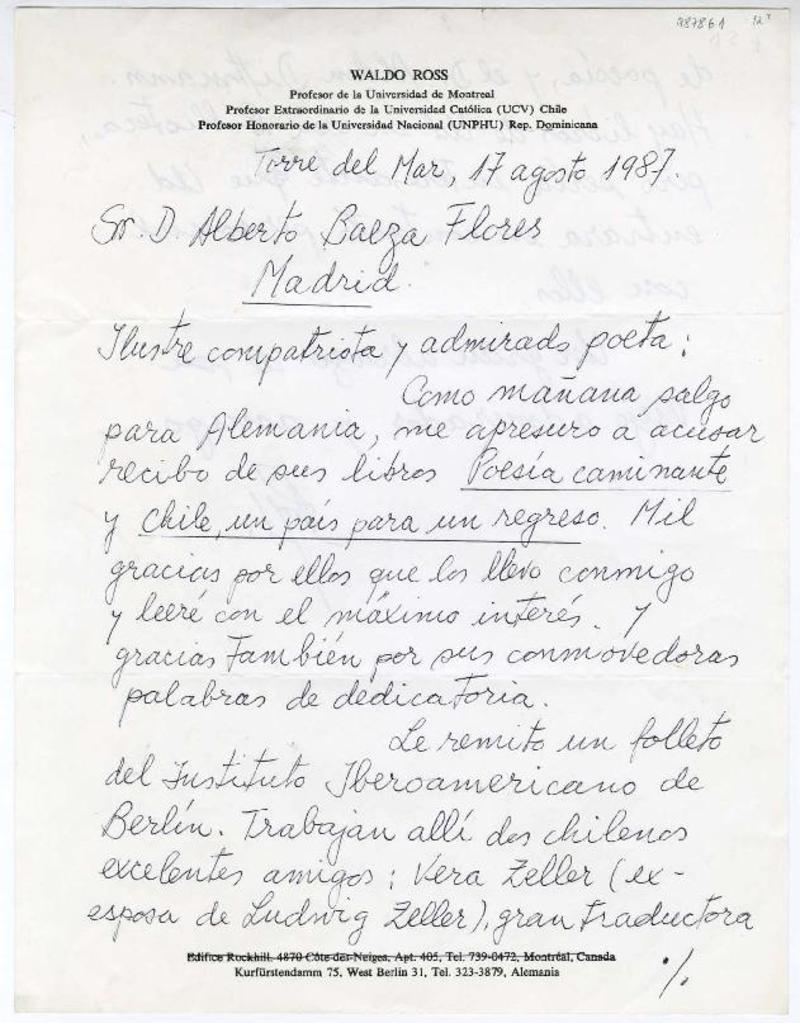 987861
WALDO ROSS
Profesor de la Universidad de Montreal
Profesor Extraordinario de la Universidad Católica (UCV) Chile
Profesor Honorario de la Universidad Nacional (UNPHU) Rep. Dominicana
Torre del Mar, 17 agosto 1987.
Sr. D. Alberto Baeza Flores
Madrid.
Ilustre compatriota y admirado poeta:
Como mañana salgo
para Alemania, me apresuro a acusar
recibo de sus libros Poesía caminante
y Chile, un país para un regreso. Mil
gracias por ellos que los llevo conmigo
y leeré con el máximo interés. Y
gracias también por sus conmovedoras
palabras de dedicatoria.
Le remito un folleto
del Instituto Iberoamericano de
Berlín. Trabajan allí dos chilenos
excelentes amigos: Vera Zeller (ex-
esposa de Ludwig Zeller), gran traductora
Edifice Rockhill. 4870 Côte-des-Neiges, Apt. 405, Tel. 739-0472, Montréal, Canada
Kurfürstendamm 75, West Berlin 31, Tel. 323-3879, Alemania
./.